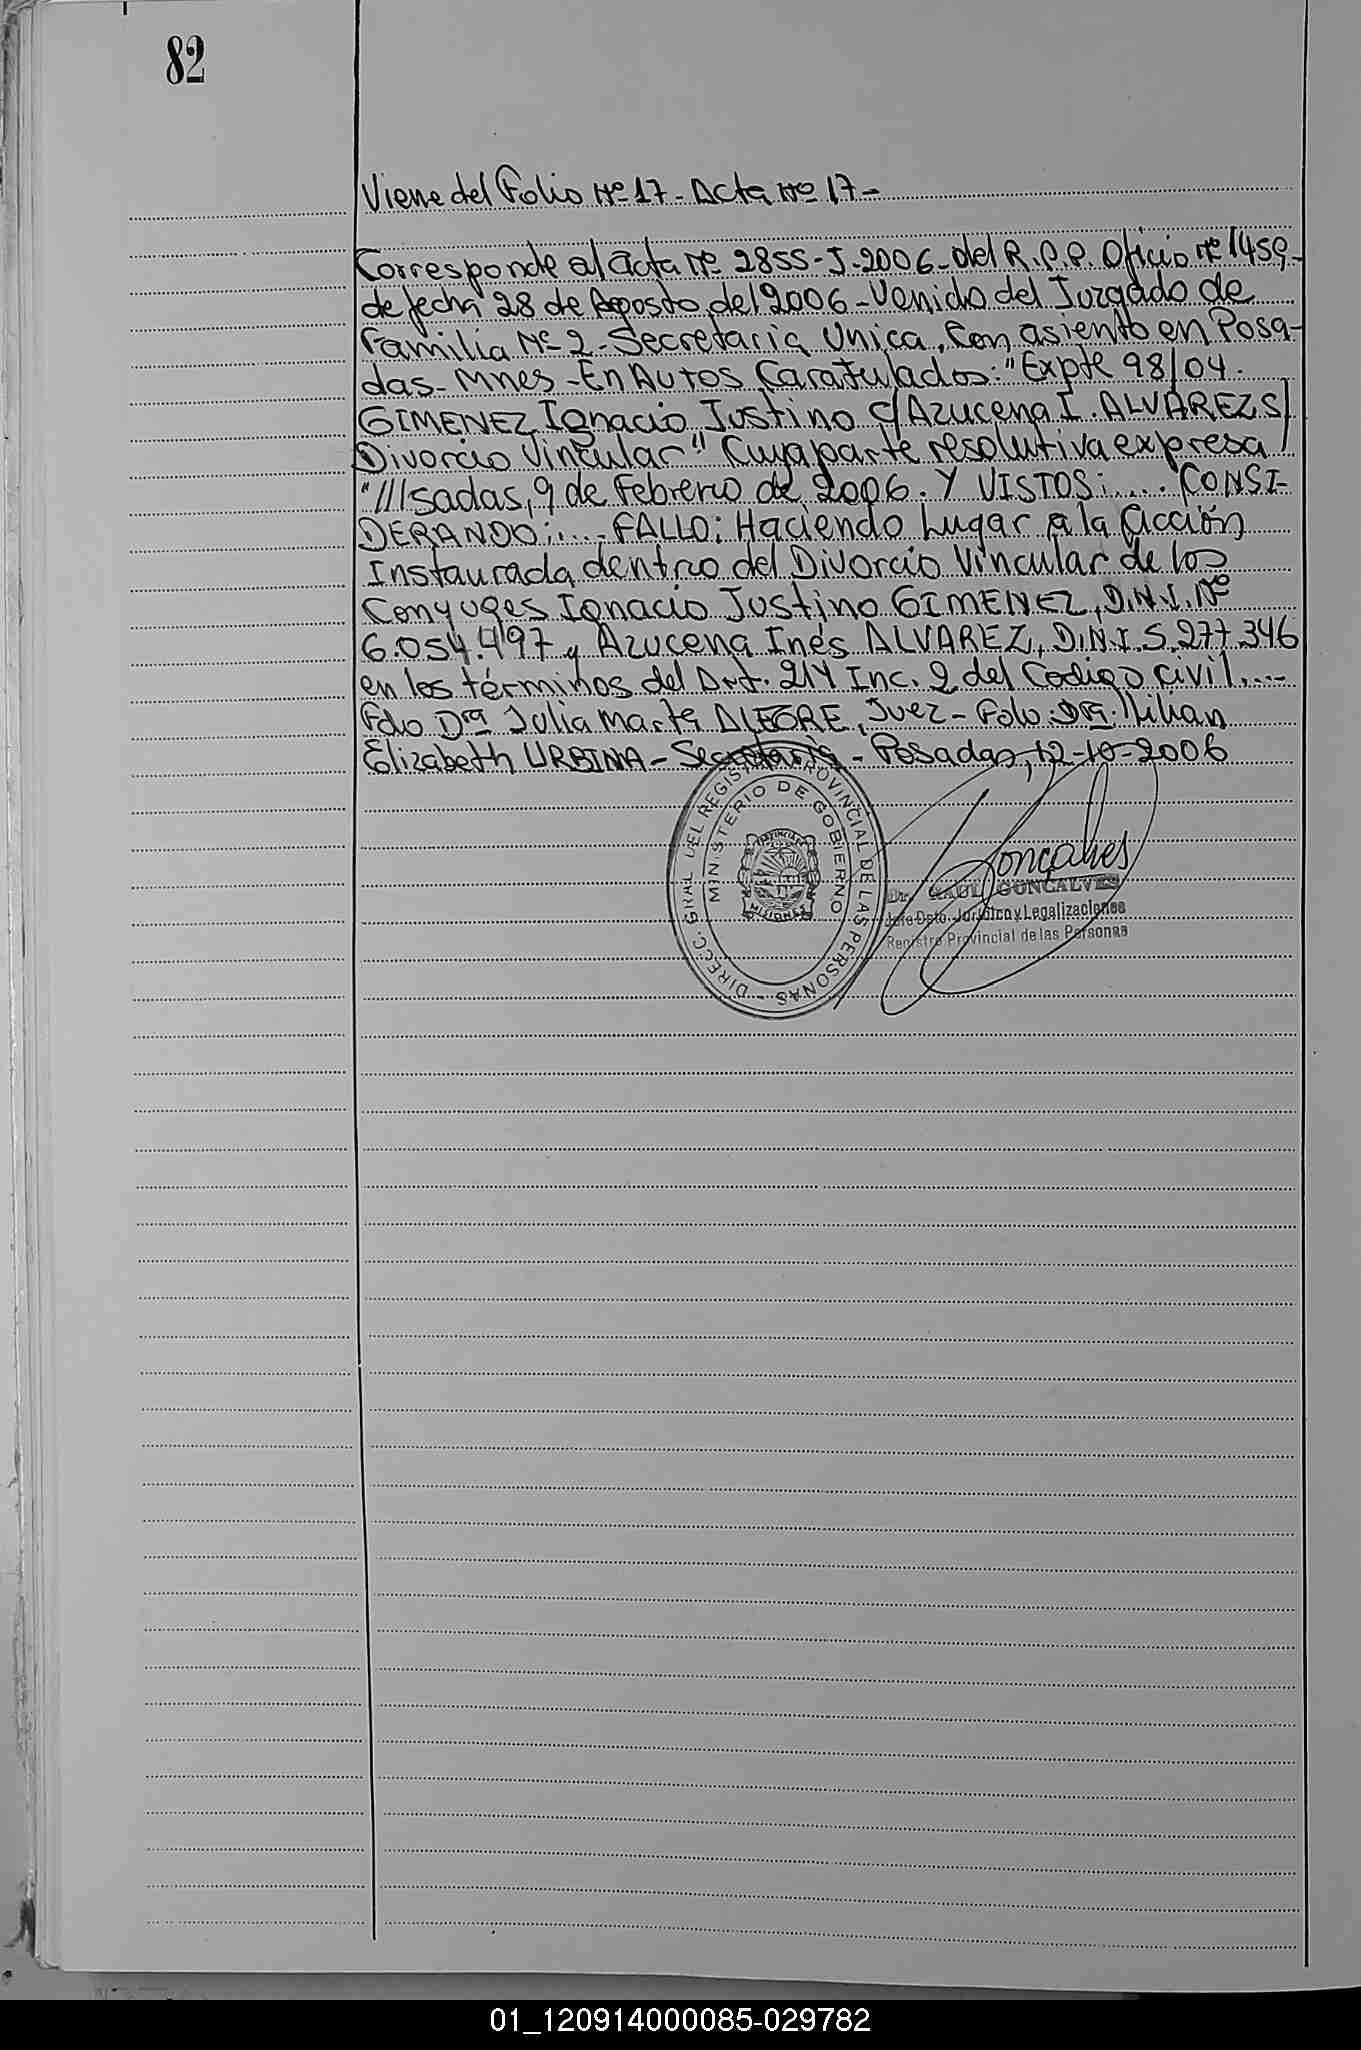 82
Viene del Folio Nº 17 - Acta Nº 17 -
Corresponde al acta Nº 2855-J-2006-del R.P.P. Oficio Nº 1459-
de fecha 28 de Agosto del 2006 - Venido del Juzgado de
Familia Nº 2 - Secretaria Unica, Con asiento en Posa-
das - Mnes - En Autos Caratulados: "Expte 98/04.
GIMENEZ Ignacio Justino c/Azucena I. ALVAREZ S/
Divorcio Vincular" Cuya parte resolutiva expresa
"///sadas, 9 de Febrero de 2006. Y VISTOS:.... CONSI-
DERANDO:.... FALLO: Haciendo Lugar a la acción
Instaurada dentro del Divorcio Vincular de los
Conyuges Ignacio Justino GIMENEZ, D.N.I. Nº
6.054.497 y Azucena Inés ALVAREZ, D.N.I. 5.277.346
en los términos del Art. 214 Inc. 2 del Codigo Civil....
Fdo Dra Julia Marta ALEGRE, Juez - Fdo: Dra. Lilian
Elizabeth URBINA - Secretaria - Posadas, 12-10-2006
DIRECC. GRAL. DEL REGISTRO PROVINCIAL DE LAS PERSONAS
MINISTERIO DE GOBIERNO
PROVINCIA
MISIONES
Goncalves
Dr. RAUL GONCALVES
Jefe Dpto. Jurídico y Legalizaciones
Registro Provincial de las Personas
01_120914000085-029782